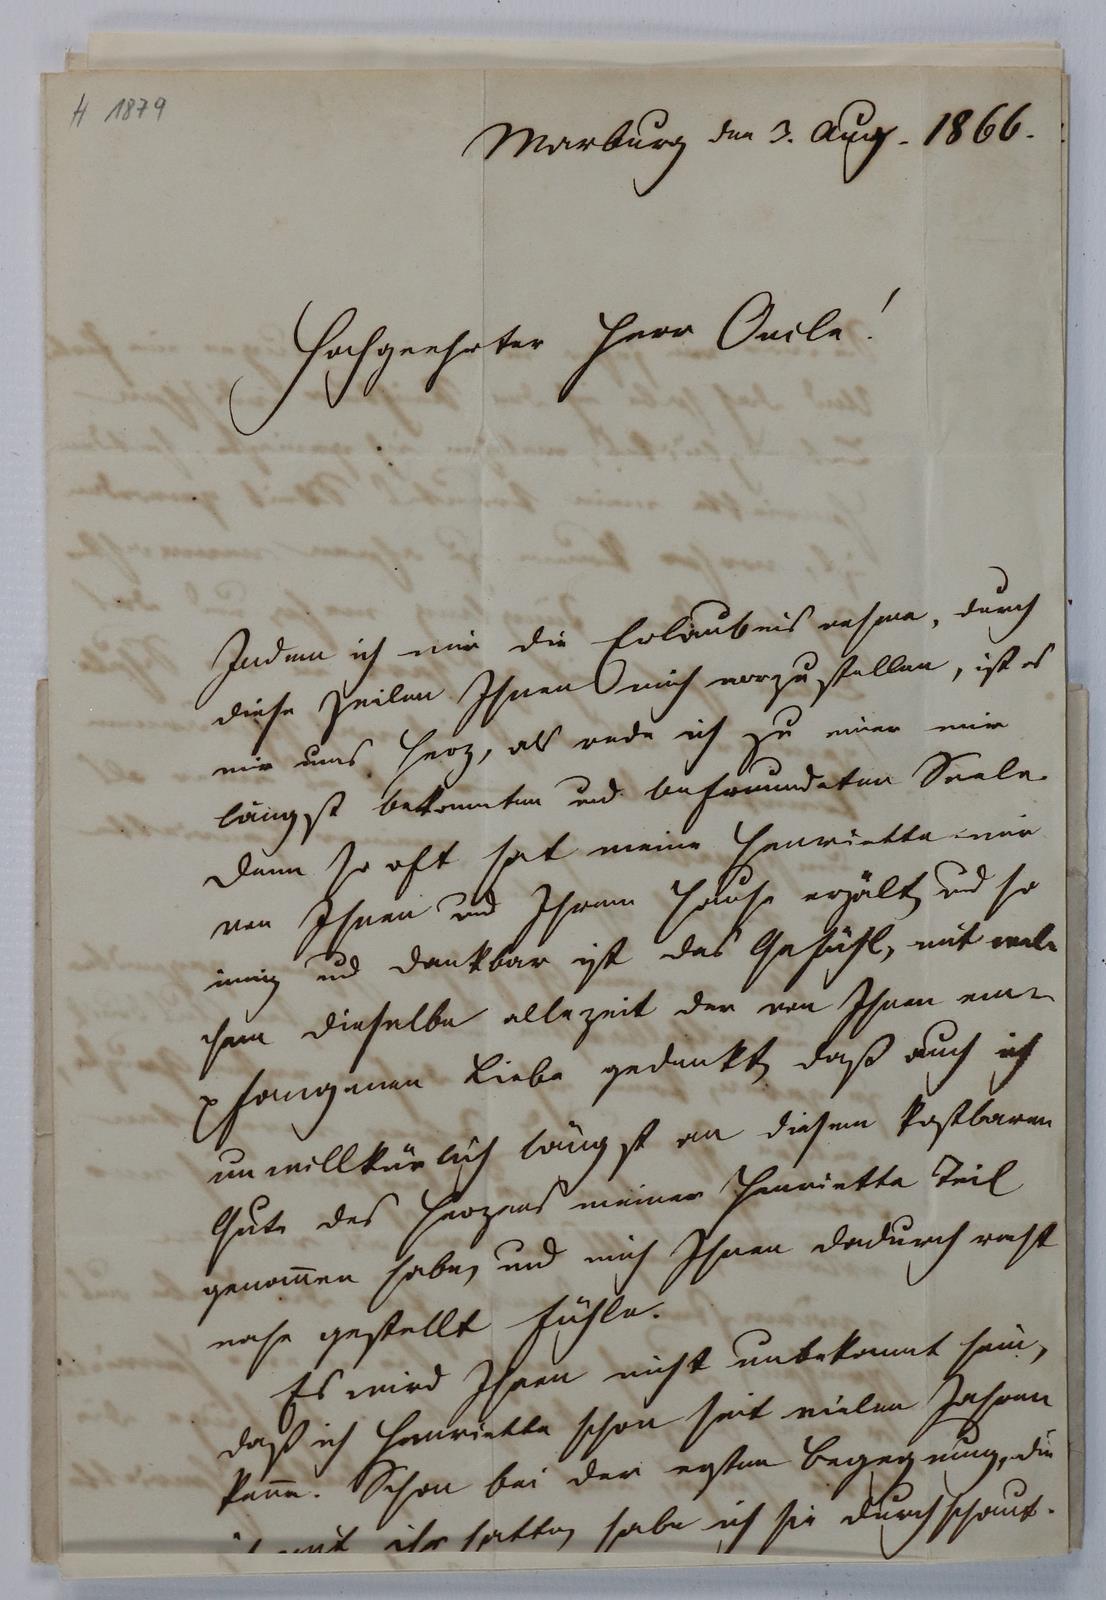 H 1879
Marburg den 3. Aug. 1866.
Hochgeehrter Herr Oncle!
Indem ich mir die Erlaubnis nehme, durch
diese Zeilen Ihnen mich vorzustellen, ist es
mir ums Herz, als rede ich zu einer mir
längst bekannten und befreundeten Seele.
Denn so oft hat meine Henriette mir
von Ihnen und Ihrem Hause erzält, und so
innig und dankbar ist das Gefühl, mit wel-
chem dieselbe allezeit der von Ihnen em-
pfangenen Liebe gedenkt, daß auch ich
unwillkürlich längst an diesem kostbaren
Gute des Herzens meiner Henriette Teil
genom̄en habe, und mich Ihnen dadurch recht
nahe gestellt fühle.
Es wird Ihnen nicht unbekannt sein,
daß ich Henriette schon seit vielen Jahren
ken̄e. Schon bei der ersten Begegnung, die
ich mit ihr hatte, habe ich sie durchschaut.